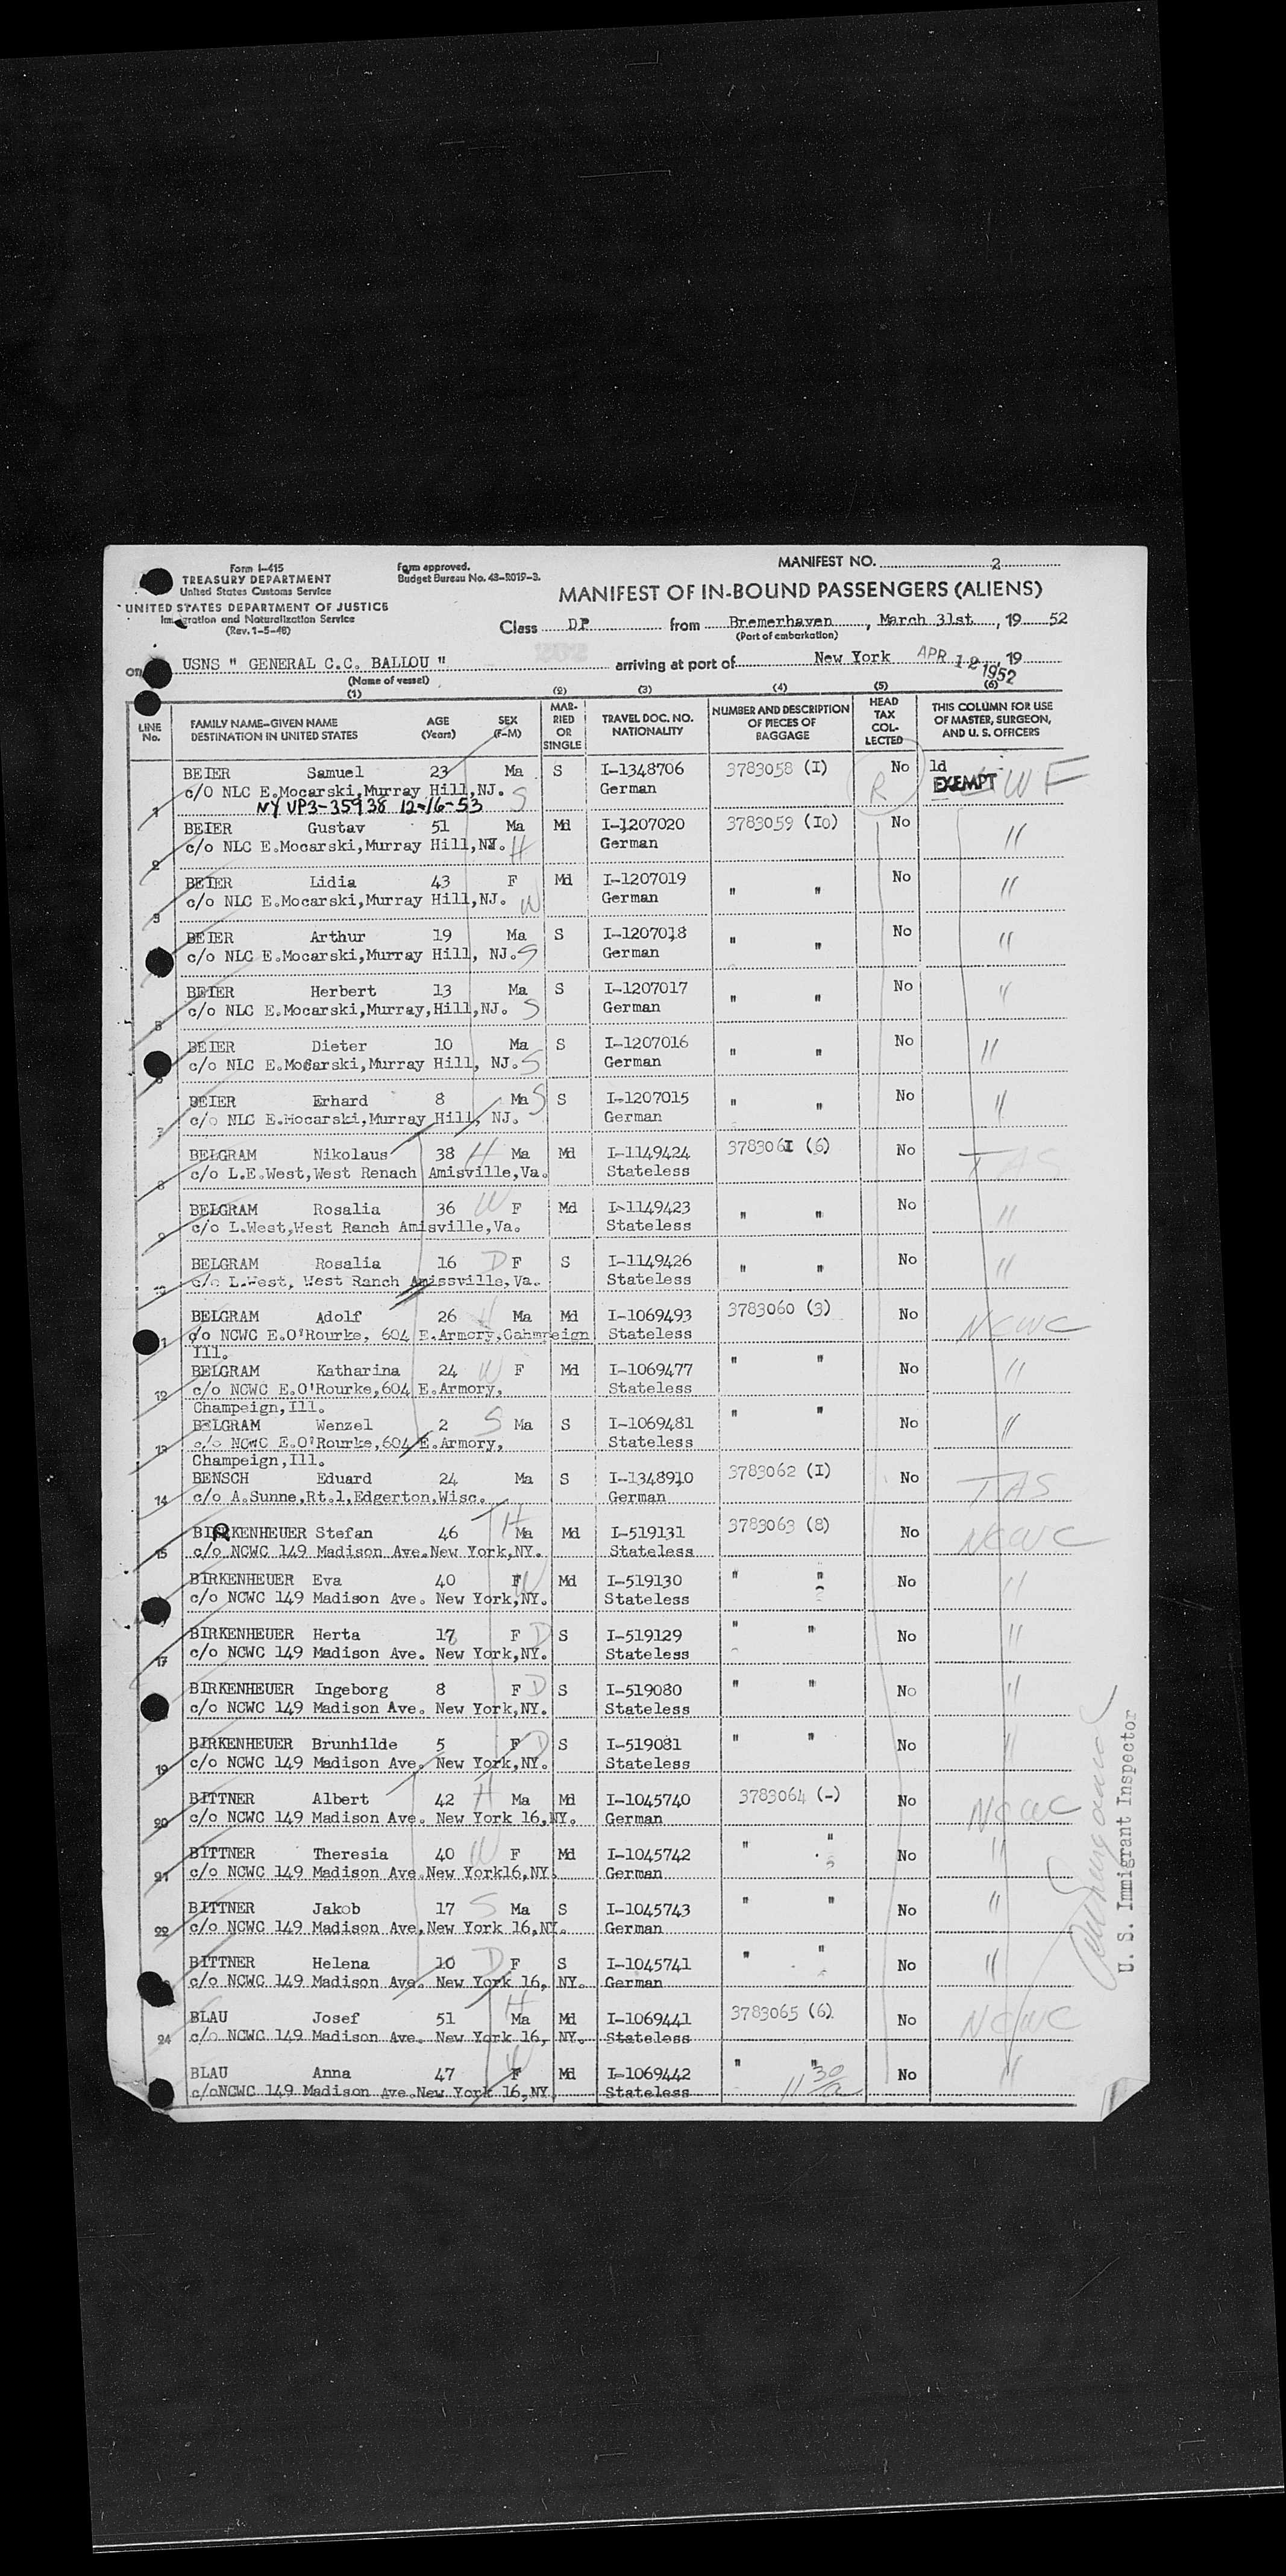 Form I-415
TREASURY DEPARTMENT
United States Customs Service
UNITED STATES DEPARTMENT OF JUSTICE
Immigration and Naturalization Service
(Rev. 1-5-48)
Form approved.
Budget Bureau No. 43-R019-3.
MANIFEST NO. 2
MANIFEST OF IN-BOUND PASSENGERS (ALIENS)
Class DP from Bremerhaven, March 31st, 19 52
(Port of embarkation)
on USNS " GENERAL C.C. BALLOU " arriving at port of New York APR 12 1952, 19
(Name of vessel)
(1) (2) (3) (4) (5) (6)
LINE No. FAMILY NAME-GIVEN NAME DESTINATION IN UNITED STATES AGE (Years) SEX (F-M) MARRIED OR SINGLE TRAVEL DOC. NO. NATIONALITY NUMBER AND DESCRIPTION OF PIECES OF BAGGAGE HEAD TAX COLLECTED THIS COLUMN FOR USE OF MASTER, SURGEON, AND U. S. OFFICERS
BEIER Samuel 23 Ma S I-1348706 3783058 (I) No ld
c/O NLC E.Mocarski,Murray Hill,NJ. S German R EXEMPT LWF
1 NY VP3-35938 12-16-53
BEIER Gustav 51 Ma Md I-1207020 3783059 (I0) No "
2 c/o NLC E.Mocarski,Murray Hill,NJ. H German
BEIER Lidia 43 F Md I-1207019 " " No "
3 c/o NLC E.Mocarski,Murray Hill,NJ. W German
BEIER Arthur 19 Ma S I-1207018 " " No "
c/o NLC E.Mocarski,Murray Hill, NJ. S German
BEIER Herbert 13 Ma S I-1207017 " " No "
5 c/o NLC E.Mocarski,Murray,Hill,NJ. S German
BEIER Dieter 10 Ma S I-1207016 " " No "
6 c/o NLC E.Mocarski,Murray Hill, NJ. S German
BEIER Erhard 8 Ma S S I-1207015 " " No "
7 c/o NLC E.Mocarski,Murray Hill, NJ. German
BELGRAM Nikolaus 38 H Ma Md I-1149424 3783061 (6) No TAS
8 c/o L.E.West,West Renach Amisville,Va. Stateless
BELGRAM Rosalia 36 W F Md I-1149423 " " No "
9 c/o L.West,West Ranch Amisville,Va. Stateless
BELGRAM Rosalia 16 D F S I-1149426 " " No "
10 c/o L.West, West Ranch Amissville,Va. Stateless
BELGRAM Adolf 26 H Ma Md I-1069493 3783060 (3) No NCWC
1 c/o NCWC E.O'Rourke, 604 E.Armory,Cahmpeign Stateless
Ill.
BELGRAM Katharina 24 W F Md I-1069477 " " No "
12 c/o NCWC E.O'Rourke,604 E.Armory, Stateless
Champeign,Ill.
BELGRAM Wenzel 2 S Ma S I-1069481 " " No "
13 c/o NCWC E.O'Rourke,604 E.Armory, Stateless
Champeign,Ill.
BENSCH Eduard 24 Ma S I-1348910 3783062 (I) No TAS
14 c/o A.Sunne,Rt.1,Edgerton,Wisc. German
BIRKENHEUER Stefan 46 H Ma Md I-519131 3783063 (8) No NCWC
15 c/o NCWC 149 Madison Ave.New York,NY. Stateless
BIRKENHEUER Eva 40 F W Md I-519130 " " No "
c/o NCWC 149 Madison Ave. New York,NY. Stateless
BIRKENHEUER Herta 17 F D S I-519129 " " No "
17 c/o NCWC 149 Madison Ave. New York,NY. Stateless
BIRKENHEUER Ingeborg 8 F D S I-519080 " " No "
c/o NCWC 149 Madison Ave. New York,NY. Stateless
BIRKENHEUER Brunhilde 5 F D S I-519081 " " No "
19 c/o NCWC 149 Madison Ave. New York,NY. Stateless
BITTNER Albert 42 H Ma Md I-1045740 3783064 (-) No NCWC
20 c/o NCWC 149 Madison Ave. New York 16,NY. German
BITTNER Theresia 40 W F Md I-1045742 " " No "
21 c/o NCWC 149 Madison Ave.New York16,NY. German
BITTNER Jakob 17 S Ma S I-1045743 " " No "
22 c/o NCWC 149 Madison Ave,New York 16,NY. German
BITTNER Helena 10 D F S I-1045741 " " No "
c/o NCWC 149 Madison Ave. New York 16, NY. German
BLAU Josef 51 H Ma Md I-1069441 3783065 (6) No NCWC
24 c/o NCWC 149 Madison Ave. New York 16, NY. Stateless
BLAU Anna 47 W F Md I-1069442 " " No "
c/oNCWC 149 Madison Ave.New York 16,NY. Stateless 11 30/a
U. S. Immigrant Inspector